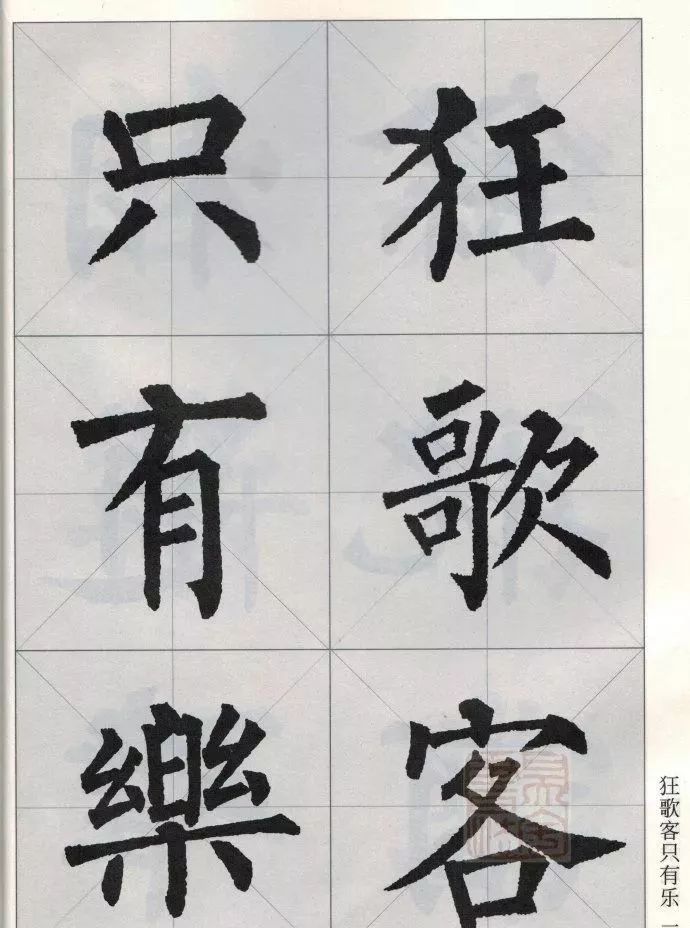 狂歌客
只有樂
狂歌客只有乐 一